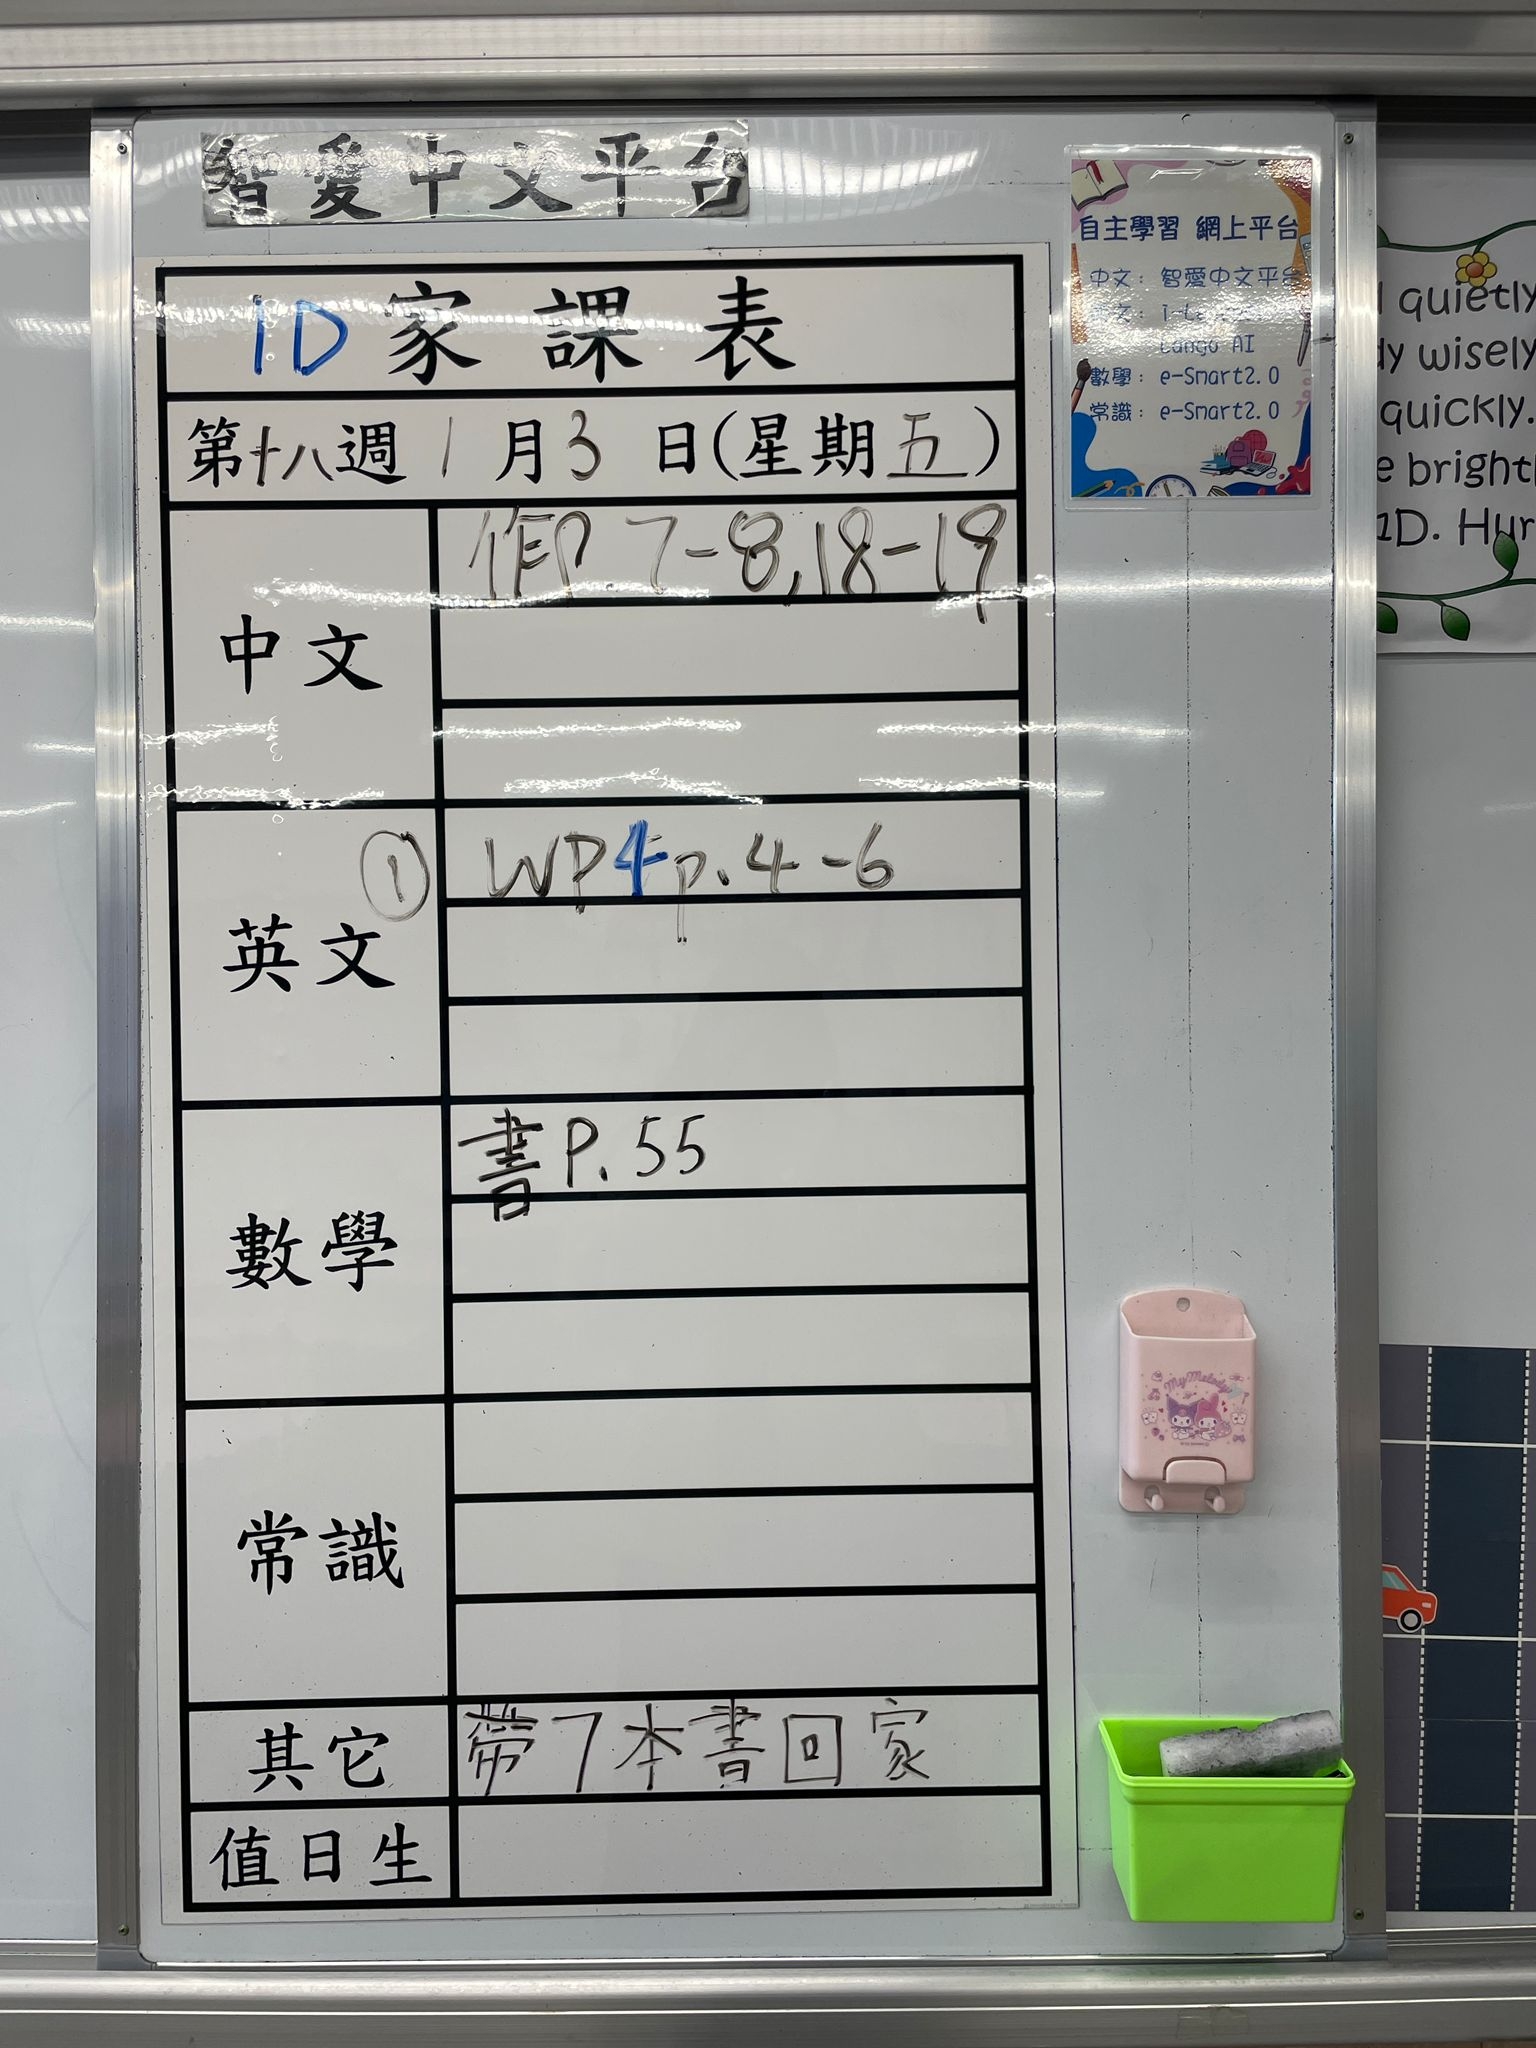 智愛中文平台
1D家課表
第十八週1月3日(星期五)
中文
作P.7-8,18-19
英文
① WP4 p.4-6
數學
書P.55
常識
其它
帶7本書回家
值日生
自主學習 網上平台
中文: 智愛中文平台
文: i-Le
Lango AI
數學: e-Smart2.0
常識: e-Smart2.0
quietly
wisely
quickly.
bright
1D. Hur
My Melody